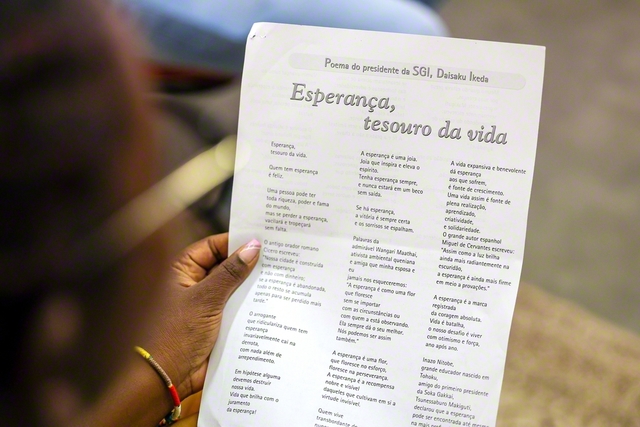 Poema do presidente da SGI, Daisaku Ikeda
Esperança,
tesouro da vida
Esperança,
tesouro da vida.
Quem tem esperança
é feliz.
Uma pessoa pode ter
toda riqueza, poder e fama
do mundo,
mas se perder a esperança,
vacilará e tropeçará
sem falta.
O antigo orador romano
Cícero escreveu:
"Nossa cidade é construída
com esperança
e não com dinheiro;
se a esperança é abandonada,
tudo o resto se acumula
apenas para ser perdido mais
tarde."
O arrogante
que ridiculariza quem tem
esperança
invariavelmente cai na
derrota,
com nada além de
arrependimento.
Em hipótese alguma
devemos destruir
nossa vida.
Vida que brilha com o
juramento
da esperança!
A esperança é uma joia.
Joia que inspira e eleva o
espírito.
Tenha esperança sempre,
e nunca estará em um beco
sem saída.
Se há esperança,
a vitória é sempre certa
e os sorrisos se espalham.
Palavras da
admirável Wangari Maathai,
ativista ambiental queniana
e amiga que minha esposa e
eu
jamais nos esqueceremos:
"A esperança é como uma flor
que floresce
sem se importar
com as circunstâncias ou
com quem a está observando.
Ela sempre dá o seu melhor.
Nós podemos ser assim
também."
A esperança é uma flor,
que floresce no esforço,
floresce na perseverança.
A esperança é a recompensa
nobre e visível
daqueles que cultivam em si a
virtude invisível.
Quem vive
transbordante de
A vida expansiva e benevolente
dá esperança
aos que sofrem,
é fonte de crescimento.
Uma vida assim é fonte de
plena realização,
aprendizado,
criatividade,
e solidariedade.
O grande autor espanhol
Miguel de Cervantes escreveu:
"Assim como a luz brilha
ainda mais radiantemente na
escuridão,
a esperança é ainda mais firme
em meio a provações."
A esperança é a marca
registrada
da coragem absoluta.
Vida é batalha,
o nosso desafio é viver
com otimismo e força,
ano após ano.
Inazo Nitobe,
grande educador nascido em
Tohoku,
amigo do primeiro presidente
da Soka Gakkai,
Tsunessaburo Makiguti,
declarou que a esperança
pode ser encontrada até mesmo